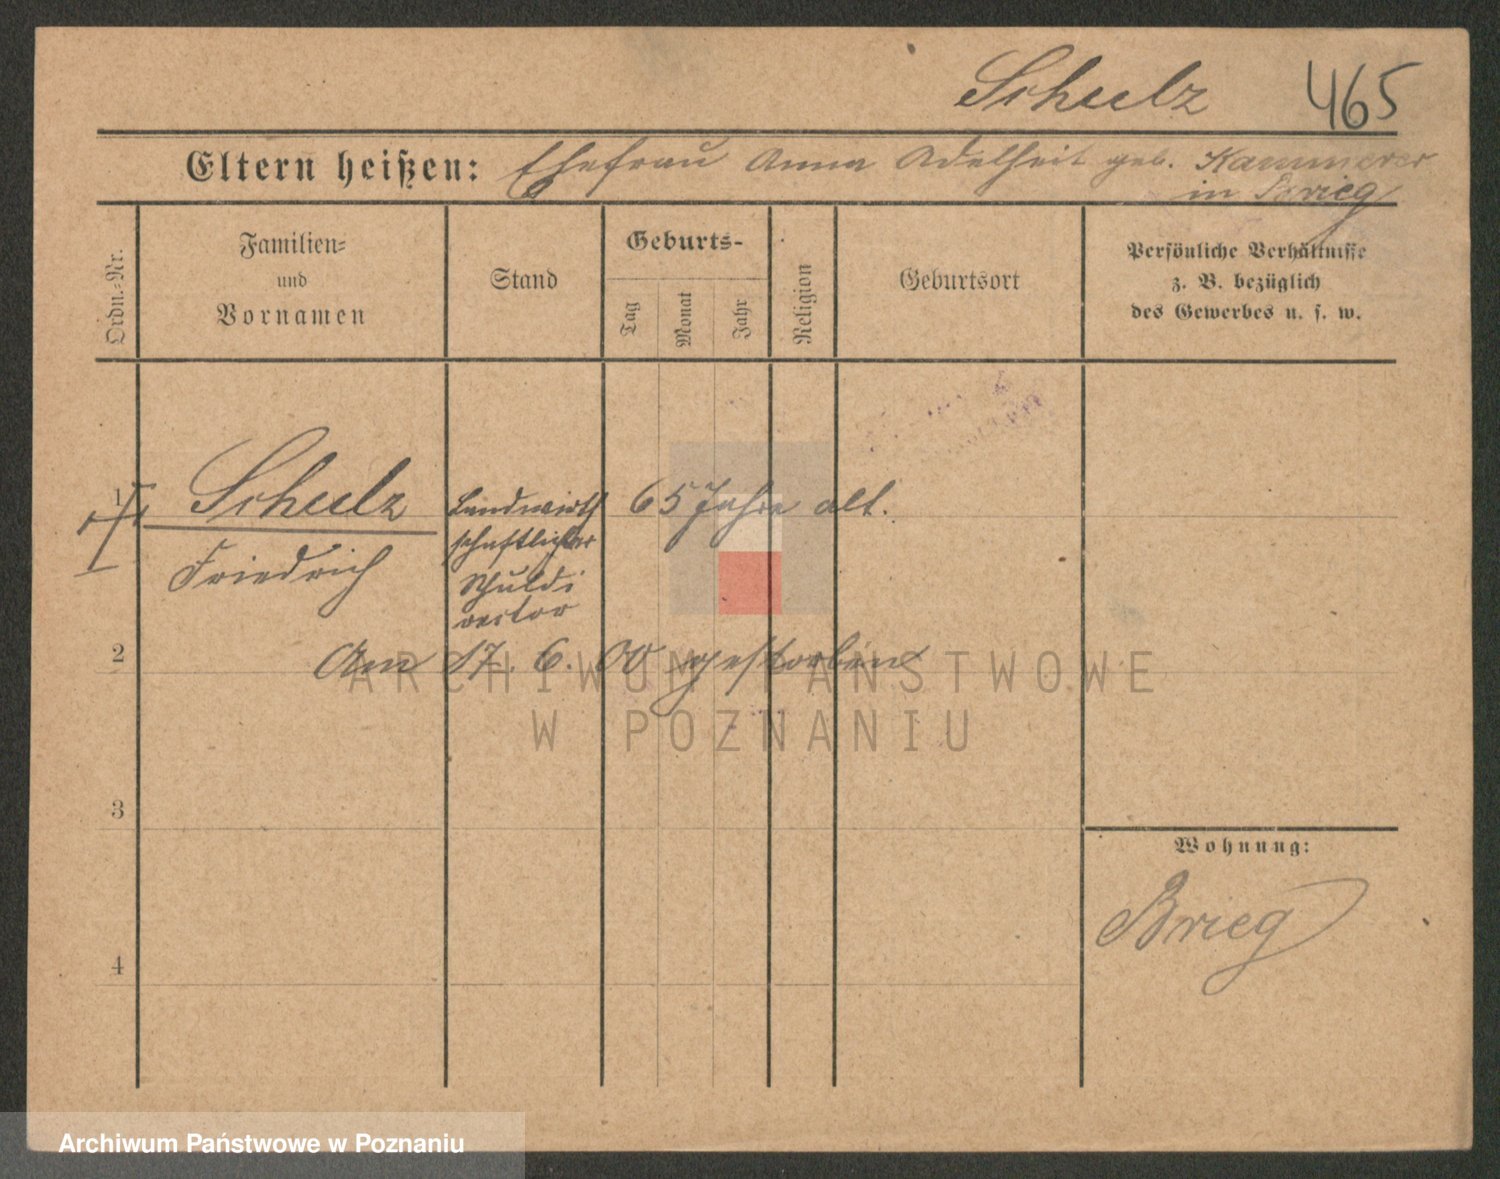 Schulz 465
Eltern heißen: Ehefrau Anna Adelheit geb. Kammerer
in Brieg
Ordn.-Nr.
Familien-
und
Vornamen
Stand
Geburts-
Tag
Monat
Jahr
Religion
Geburtsort
Persönliche Verhältnisse
z. B. bezüglich
des Gewerbes u. s. w.
1 Schulz
Friedrich
Landwirth
schaftlicher
Schuldi
rector
65 Jahre alt.
2
Am 17. 6. 00 gestorben
ARCHIWUM PAŃSTWOWE
W POZNANIU
3
Wohnung:
Brieg
4
Archiwum Państwowe w Poznaniu